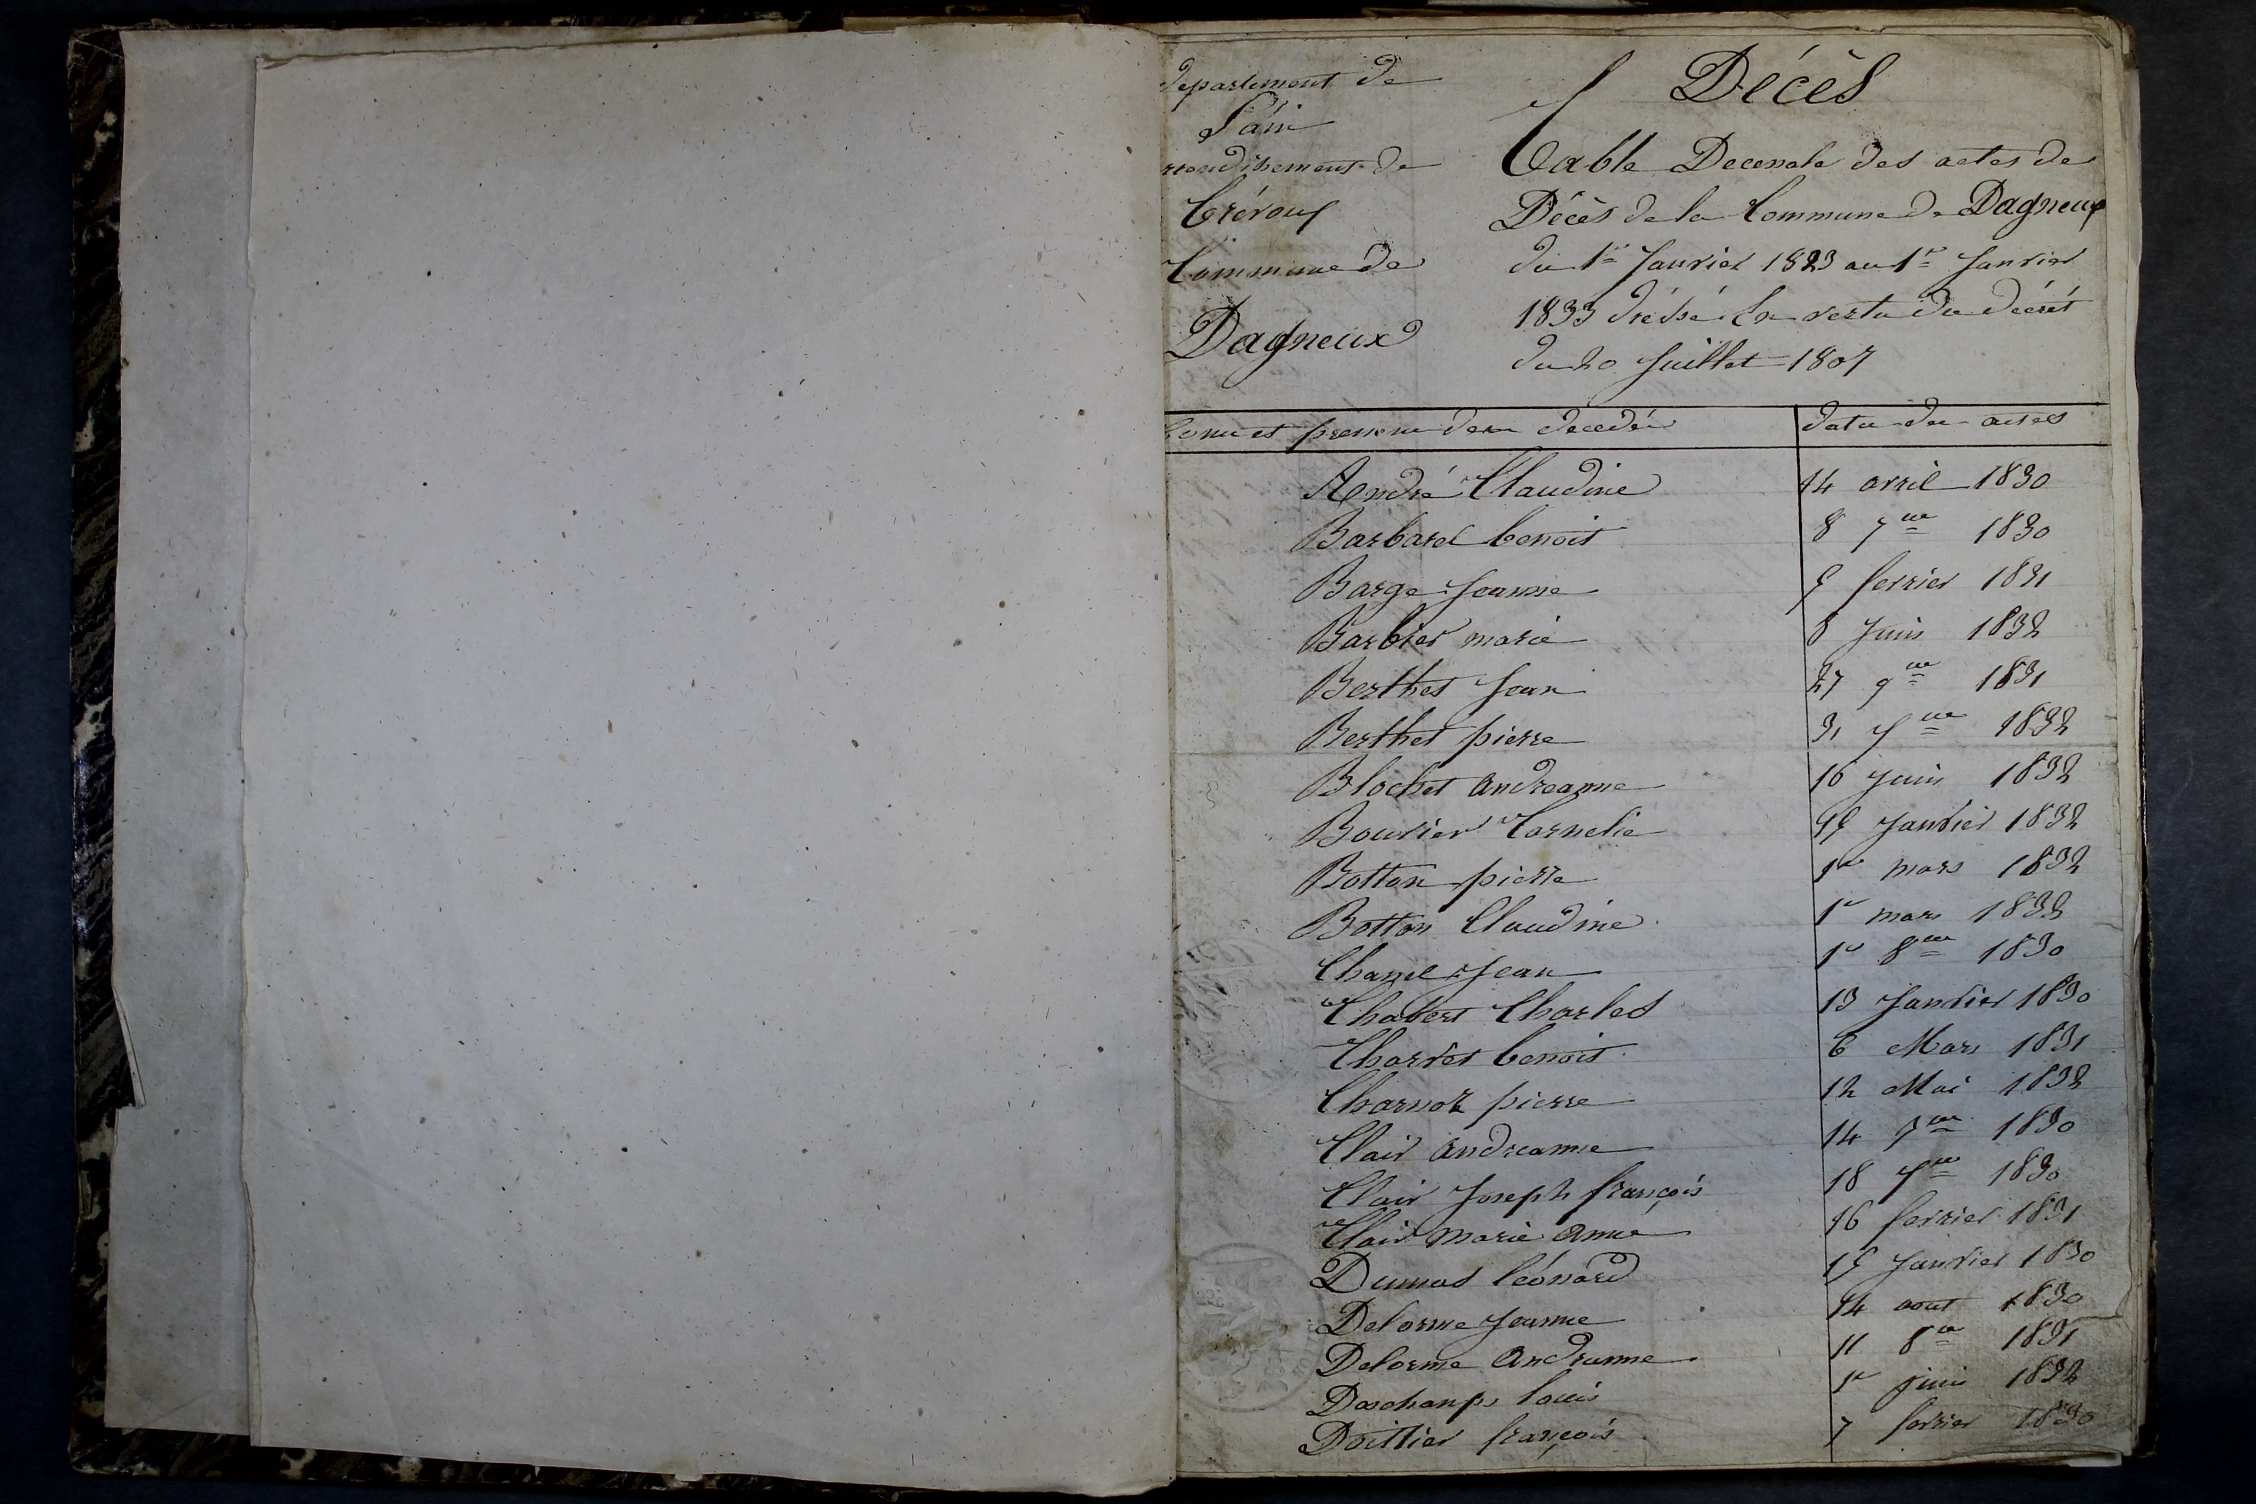 Département de
L'ain
rrondissement de
Trévoux
Commune de
Dagneux
Décès
Table Decenale des actes de
Décès de la Commune de Dagneux
du 1er Janvier 1823 au 1er Janvier
1833 dréssé En vertu du décrét
du 20 Juillet 1807
Noms et prenoms des decedés
date des actes
André Claudine 14 avril 1830
Barbaret benoit 8 7bre 1830
Barge Jeanne 9 fevrier 1831
Barbier marie 8 Juin 1832
Berthet Jean 27 9bre 1831
Berthet pierre 31 7bre 1832
Blochet andreanne 16 Juin 1832
Bouvier Cornelie 19 Janvier 1832
Botton pierre 1er mars 1832
Botton Claudine 1er mars 1832
Jean 1er 8bre 1830
Chabert Charles 13 Janvier 1830
Charvet benoit 6 Mars 1831
Charnoz pierre 12 Mai 1832
Clair andreanne 14 7bre 1830
Clair Joseph françois 18 7bre 1830
Clair Marie Anne 16 fevrier 1831
Dumas léonard 19 Janvier 1830
Delorme Jeanne 14 aout 1830
Delorme Andreanne 11 8bre 1831
Deschamps louis 1er juin 1832
Doittier françois 7 fevrier 1830